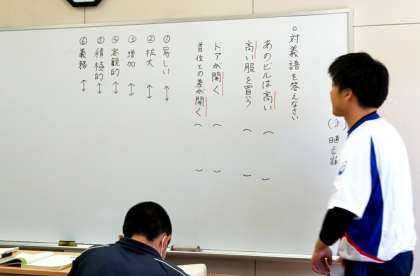 ◦対義語を答えなさい
あのビルは高い（　　）
高い服を買う（　　）
ドアが開く（　　）
首位との差が開く（　　）
①易しい ↔
②拡大 ↔
③増加 ↔
④客観的 ↔
⑤積極的 ↔
⑥義務 ↔